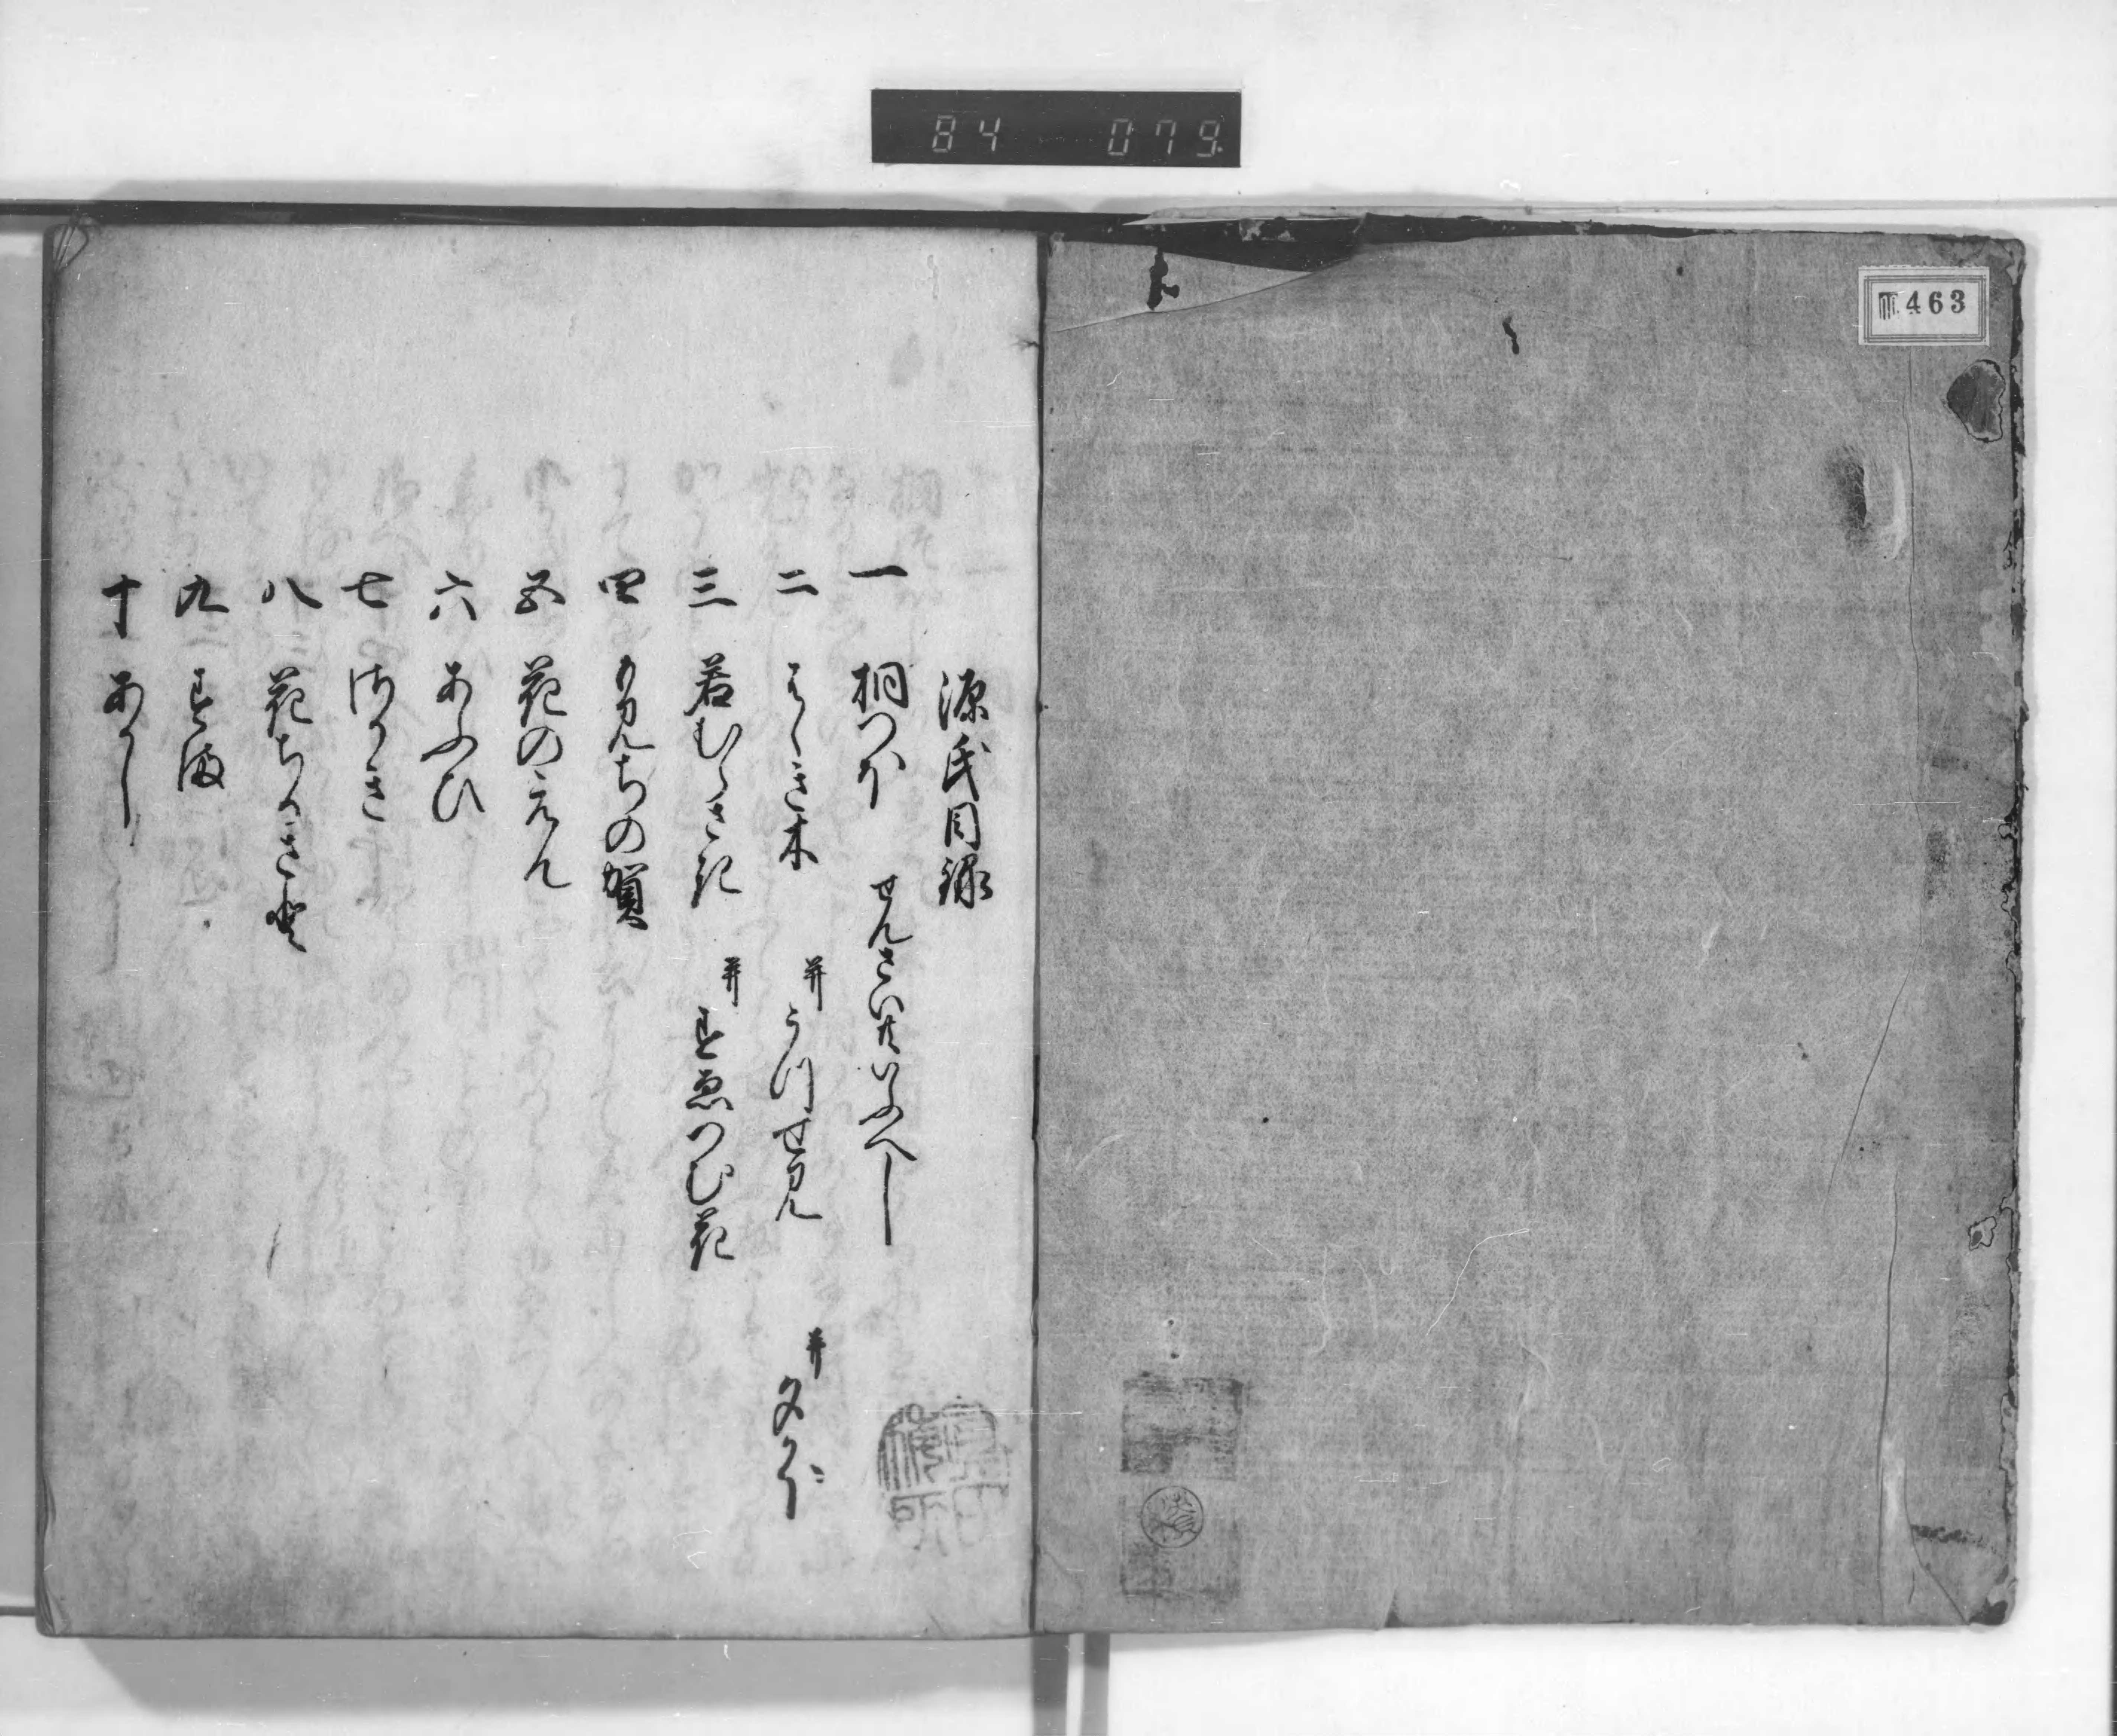 84 079
463
源氏目録
一 桐つほ せんさいたいふへし
二 はゝき木 并 うつせみ 并 夕かほ
三 若むらさき 并 すゑつむ花
四 もみちの賀
五 花のえん
六 あふひ
七 さかき
八 花ちるさと
九 すま
十 あかし